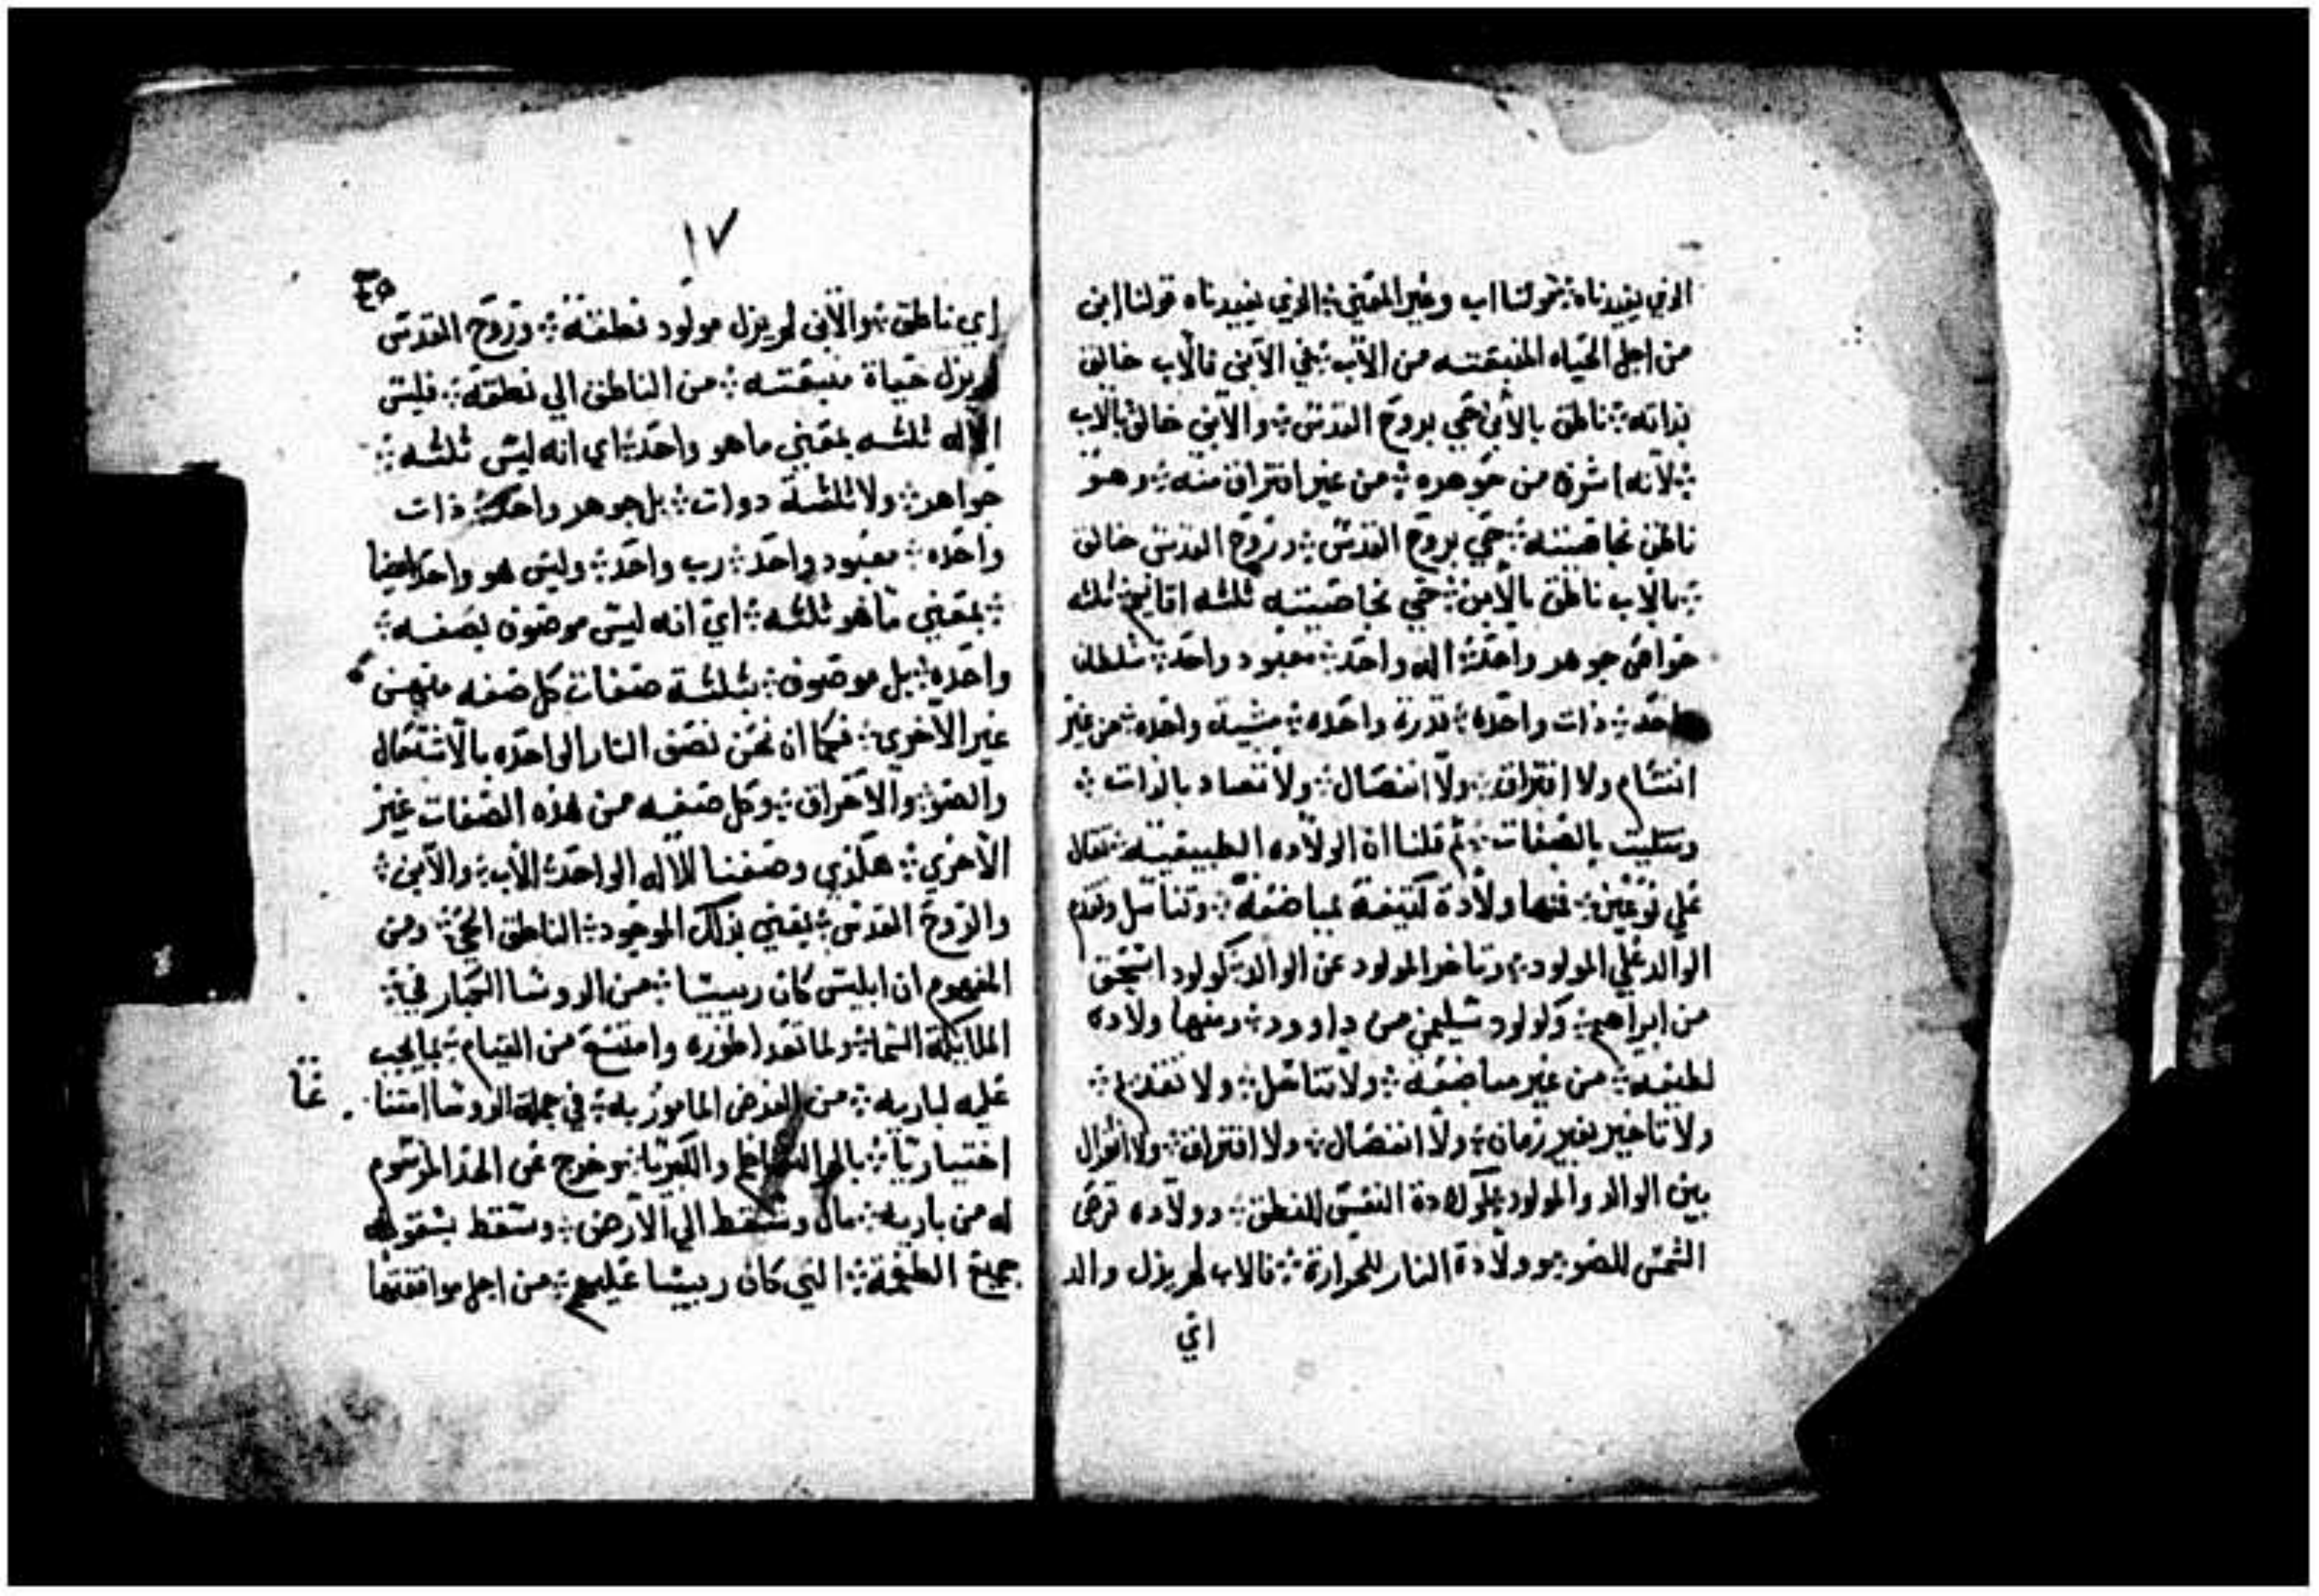 الذي يفيدناه قولنا اب وغير المعني الذي يفيدناه قولنا ابن
من اجل الحياه المنبعثه من الاب في الابن فالاب خالق
بذاته ناطق بالابن حي بروح القدس والابن خالق بالاب
لانه اشرق من جوهره من غير افتراق منه وهو
ناطق بخاصيته حي بروح القدس وروح القدس خالق
بالاب ناطق بالابن حي بخاصيته ثلثه اقانيم ثلثه
خواص جوهر واحد اله واحد معبود واحد سلطان
واحد ذات واحده قدرة واحده مشية واحده من غير
انقسام ولا افتراق ولا انفصال ولا تضاد بالذات
وتثليث بالصفات ثم قلنا ان الولاده الطبيعيه تقال
علي نوعين فمنها ولادة كثيفة بمباضعة وتناسل وتقدم
الوالد علي المولود وتاخر المولود عن الوالد كولود اسحق
من ابراهيم وكولود سليمن من داوود ومنها ولاده
لطيفه من غير مباضعه ولا تناسل ولا تقدم
ولا تاخير بغير زمان ولا انفصال ولا افتراق ولا
بين الوالد والمولود كولادة النفس للنطق وولاده قرص
الشمس للضو وولادة النار للحرارة فالاب لم يزل والد
اي
١٧
اي ناطق والابن لم يزل مولود نطقه وروح القدس
لم يزل حياة منبعثه من الناطق الي نطقه فليس
الاله ثلثه بمعني ما هو واحد اي انه ليس ثلثه
جواهر ولا ثلثة دوات بل جوهر واحد ذات
واحده معبود واحد رب واحد وليس هو واحد ايضا
بمعني ما هو ثلثه اي انه ليس موصوف بصفه
واحده بل موصوف بثلثة صفات كل صفه منهن
غير الاخري فكما ان نحن نصف النار الواحده بالاشتعال
والضو والاحراق وكل صفه من هذه الصفات غير
الاخري هكذي وصفنا للاله الواحد الاب والابن
والروح القدس يعني بذلك الموجود الناطق الحي ومن
المفهوم ان ابليس كان رييسا من الروسا الكبار في
الملايكة السما ولما تعدا طوره وامتنع من القيام بما يجب
عليه لباريه من الفرض المامور به في جملة الروسا امتناعا
اختياريا والكبريا وخرج عن الحد المرسوم
له من باريه مال وسقط الي الارض وسقط بسقوطه
جميع الطغمة التي كان رييسا عليهم من اجل موافقتها